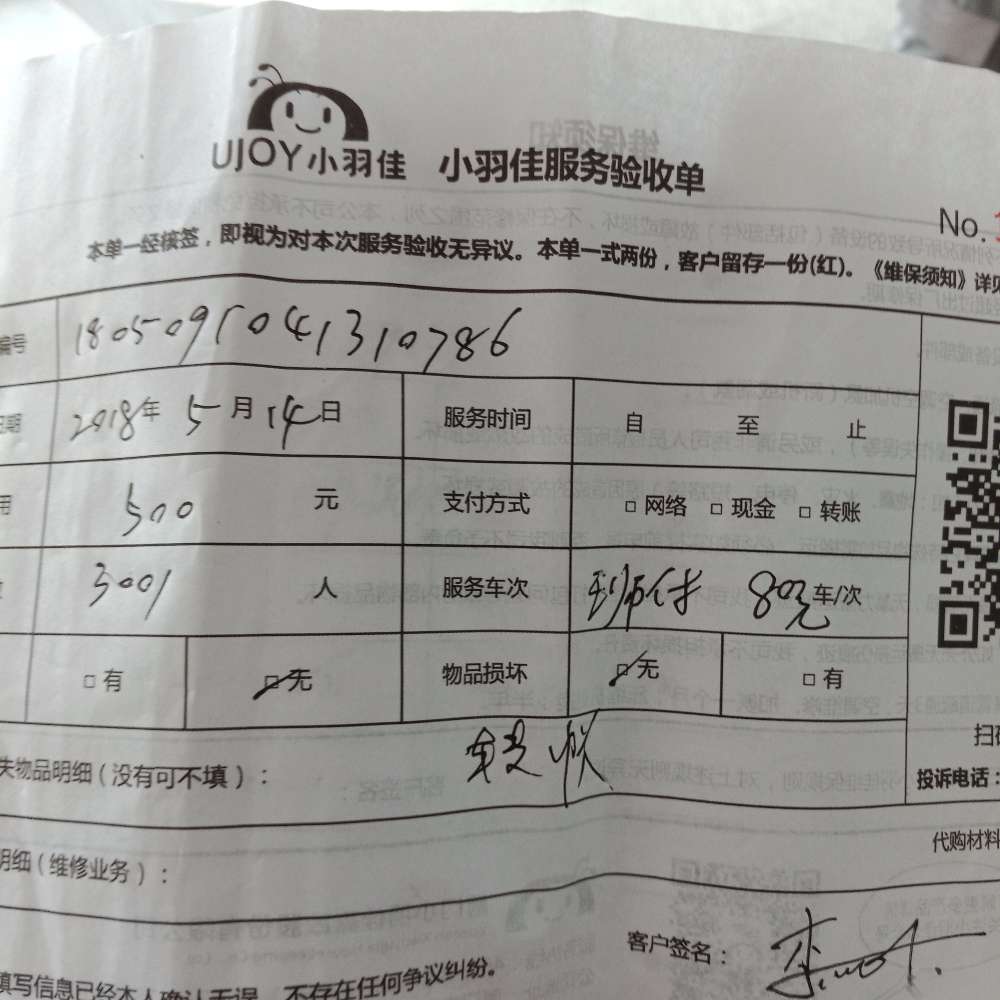 UJOY小羽佳 小羽佳服务验收单
No.
本单一经核签，即视为对本次服务验收无异议。本单一式两份，客户留存一份(红)。《维保须知》详见
编号 1805091041310786
日期 2018年 5月 14日 服务时间 自 至 止
用 500 元 支付方式 □ 网络 □ 现金 □ 转账
3001 人 服务车次 80元 车/次
□ 有 □ 无 物品损坏 □ 无 □ 有
失物品明细（没有可不填）：
扫码
投诉电话：
代购材料
明细（维修业务）：
客户签名：
填写信息已经本人确认无误，不存在任何争议纠纷。